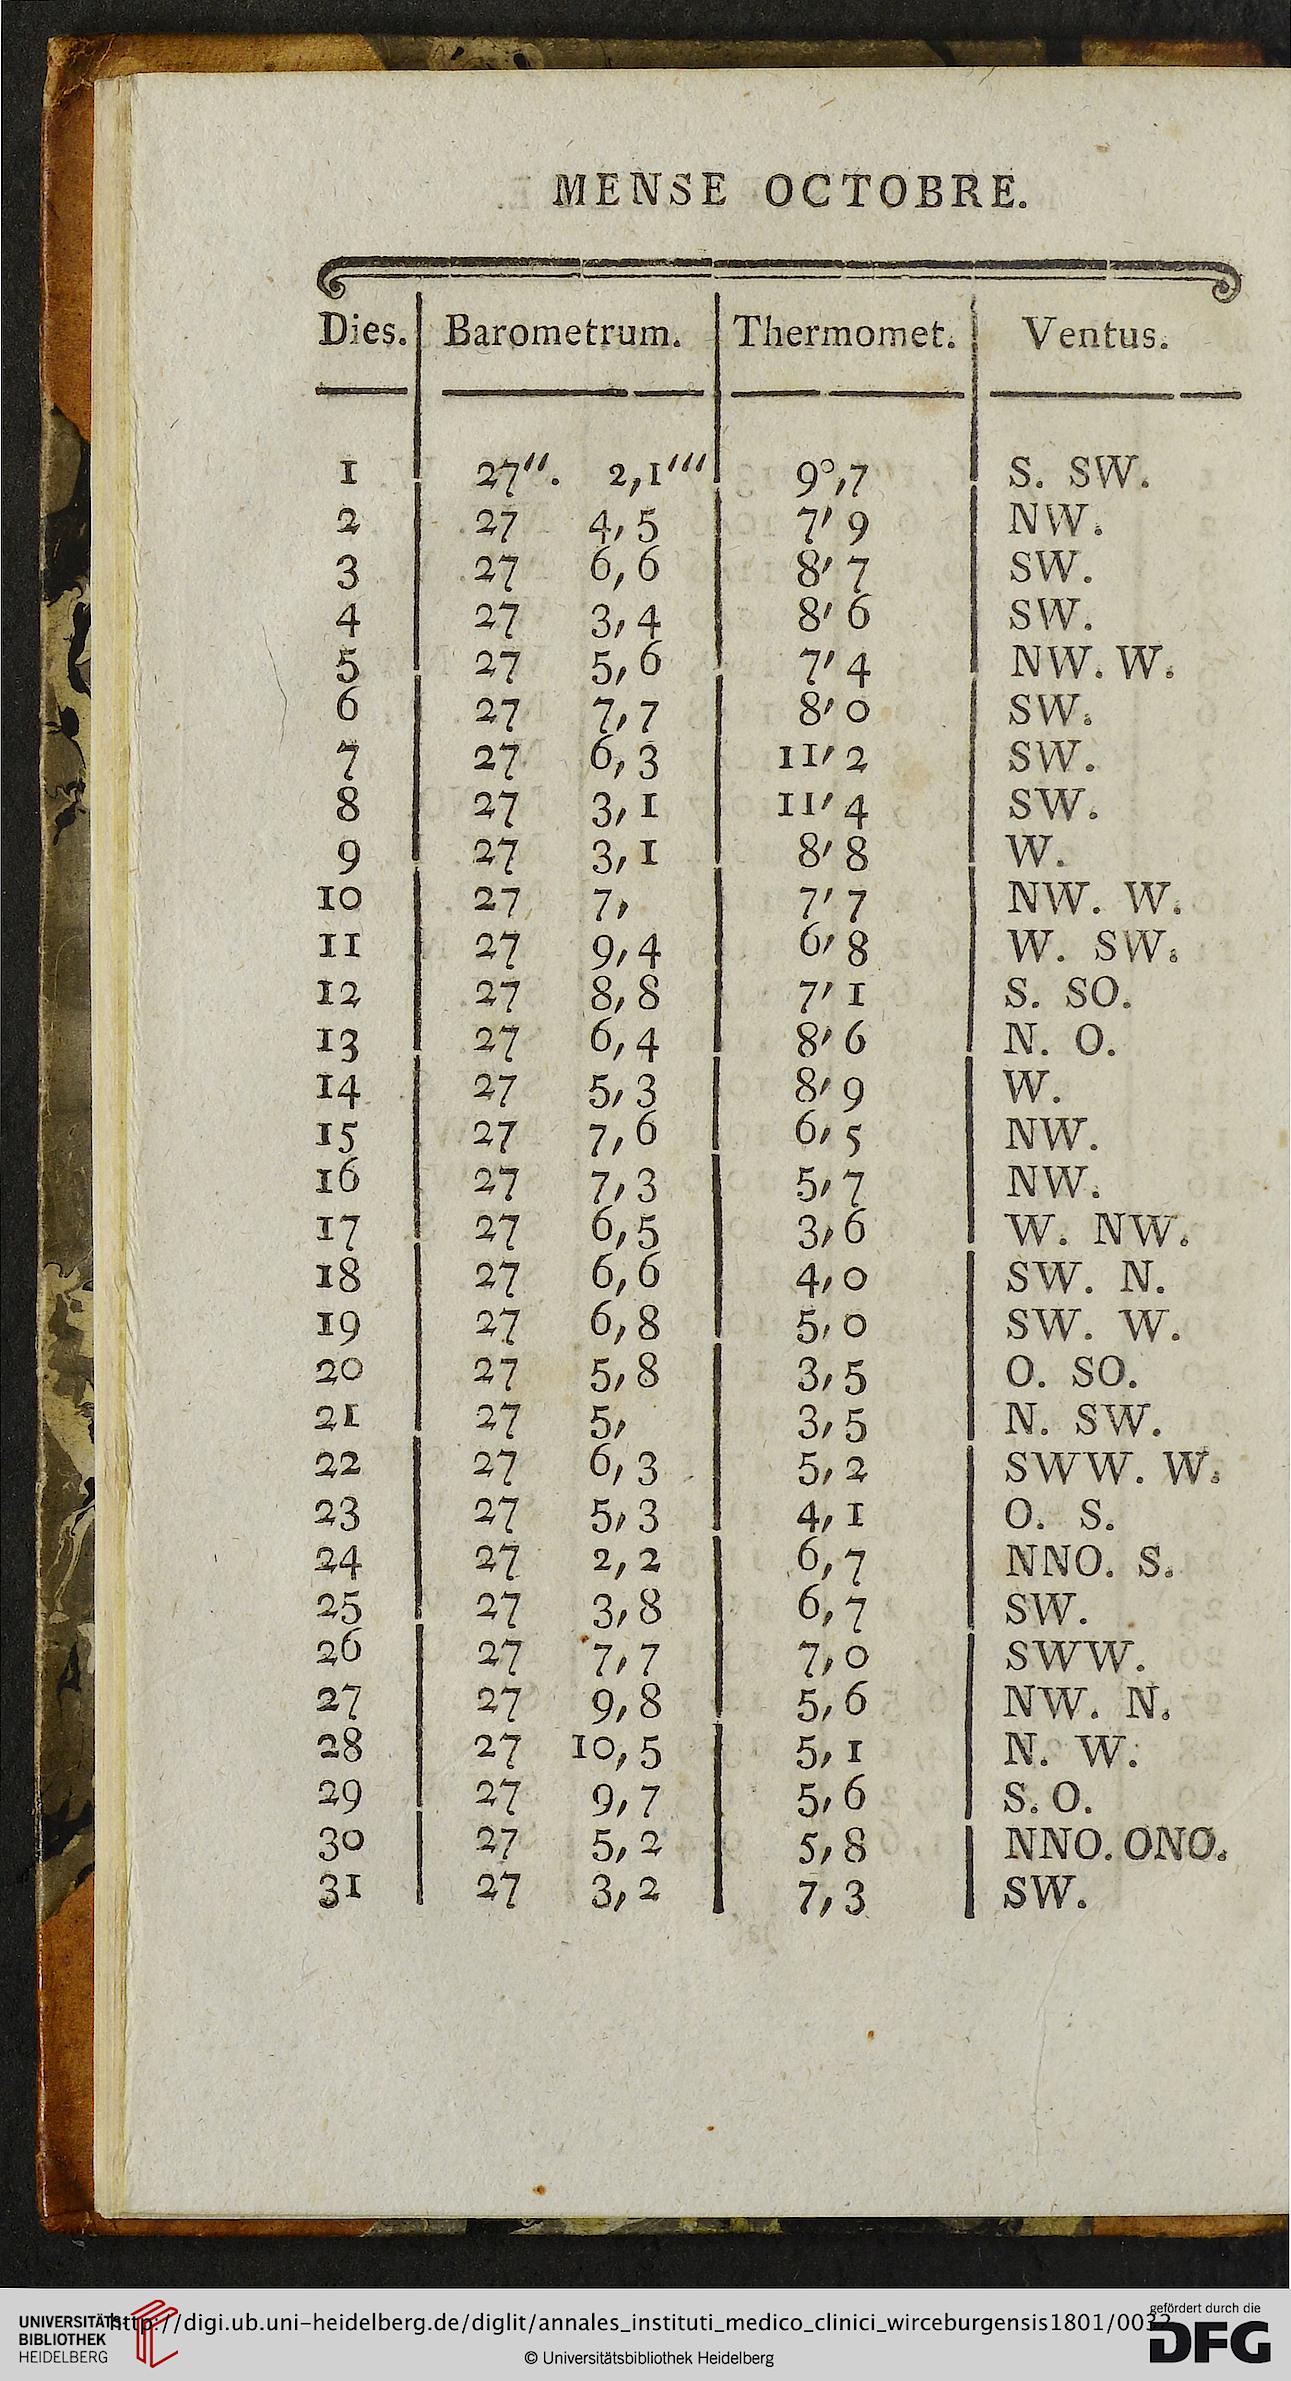 MENSE OCTOBRE.
Dies. Barometrum. Thermomet. Ventus.
1 27″. 2,1‴ 9°,7 S. SW.
2 27 4,5 7′9 NW.
3 27 6,6 8′7 SW.
4 27 3,4 8′6 SW.
5 27 5,6 7′4 NW. W.
6 27 7,7 8′0 SW.
7 27 6,3 11′2 SW.
8 27 3,1 11′4 SW.
9 27 3,1 8′8 W.
10 27 7, 7′7 NW. W.
11 27 9,4 6′8 W. SW.
12 27 8,8 7′1 S. SO.
13 27 6,4 8′6 N. O.
14 27 5,3 8′9 W.
15 27 7,6 6,5 NW.
16 27 7,3 5′7 NW.
17 27 6,5 3,6 W. NW.
18 27 6,6 4,0 SW. N.
19 27 6,8 5,0 SW. W.
20 27 5,8 3,5 O. SO.
21 27 5, 3,5 N. SW.
22 27 6,3 5,2 SWW. W.
23 27 5,3 4,1 O. S.
24 27 2,2 6,7 NNO. S.
25 27 3,8 6,7 SW.
26 27 7,7 7,0 SWW.
27 27 9,8 5,6 NW. N.
28 27 10,5 5,1 N. W.
29 27 9,7 5,6 S. O.
30 27 5,2 5,8 NNO. ONO.
31 27 3,2 7,3 SW.
UNIVERSITÄTS-
BIBLIOTHEK
HEIDELBERG
http://digi.ub.uni-heidelberg.de/diglit/annales_instituti_medico_clinici_wirceburgensis1801/0032
© Universitätsbibliothek Heidelberg
gefördert durch die
DFG